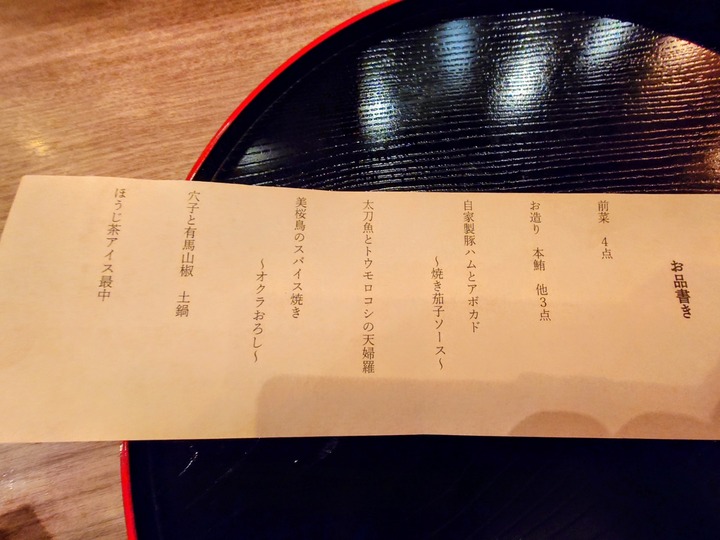 お品書き
前菜　4点
お造り　本鮪　他3点
自家製豚ハムとアボカド
〜焼き茄子ソース〜
太刀魚とトウモロコシの天婦羅
美桜鳥のスパイス焼き
〜オクラおろし〜
穴子と有馬山椒　土鍋
ほうじ茶アイス最中